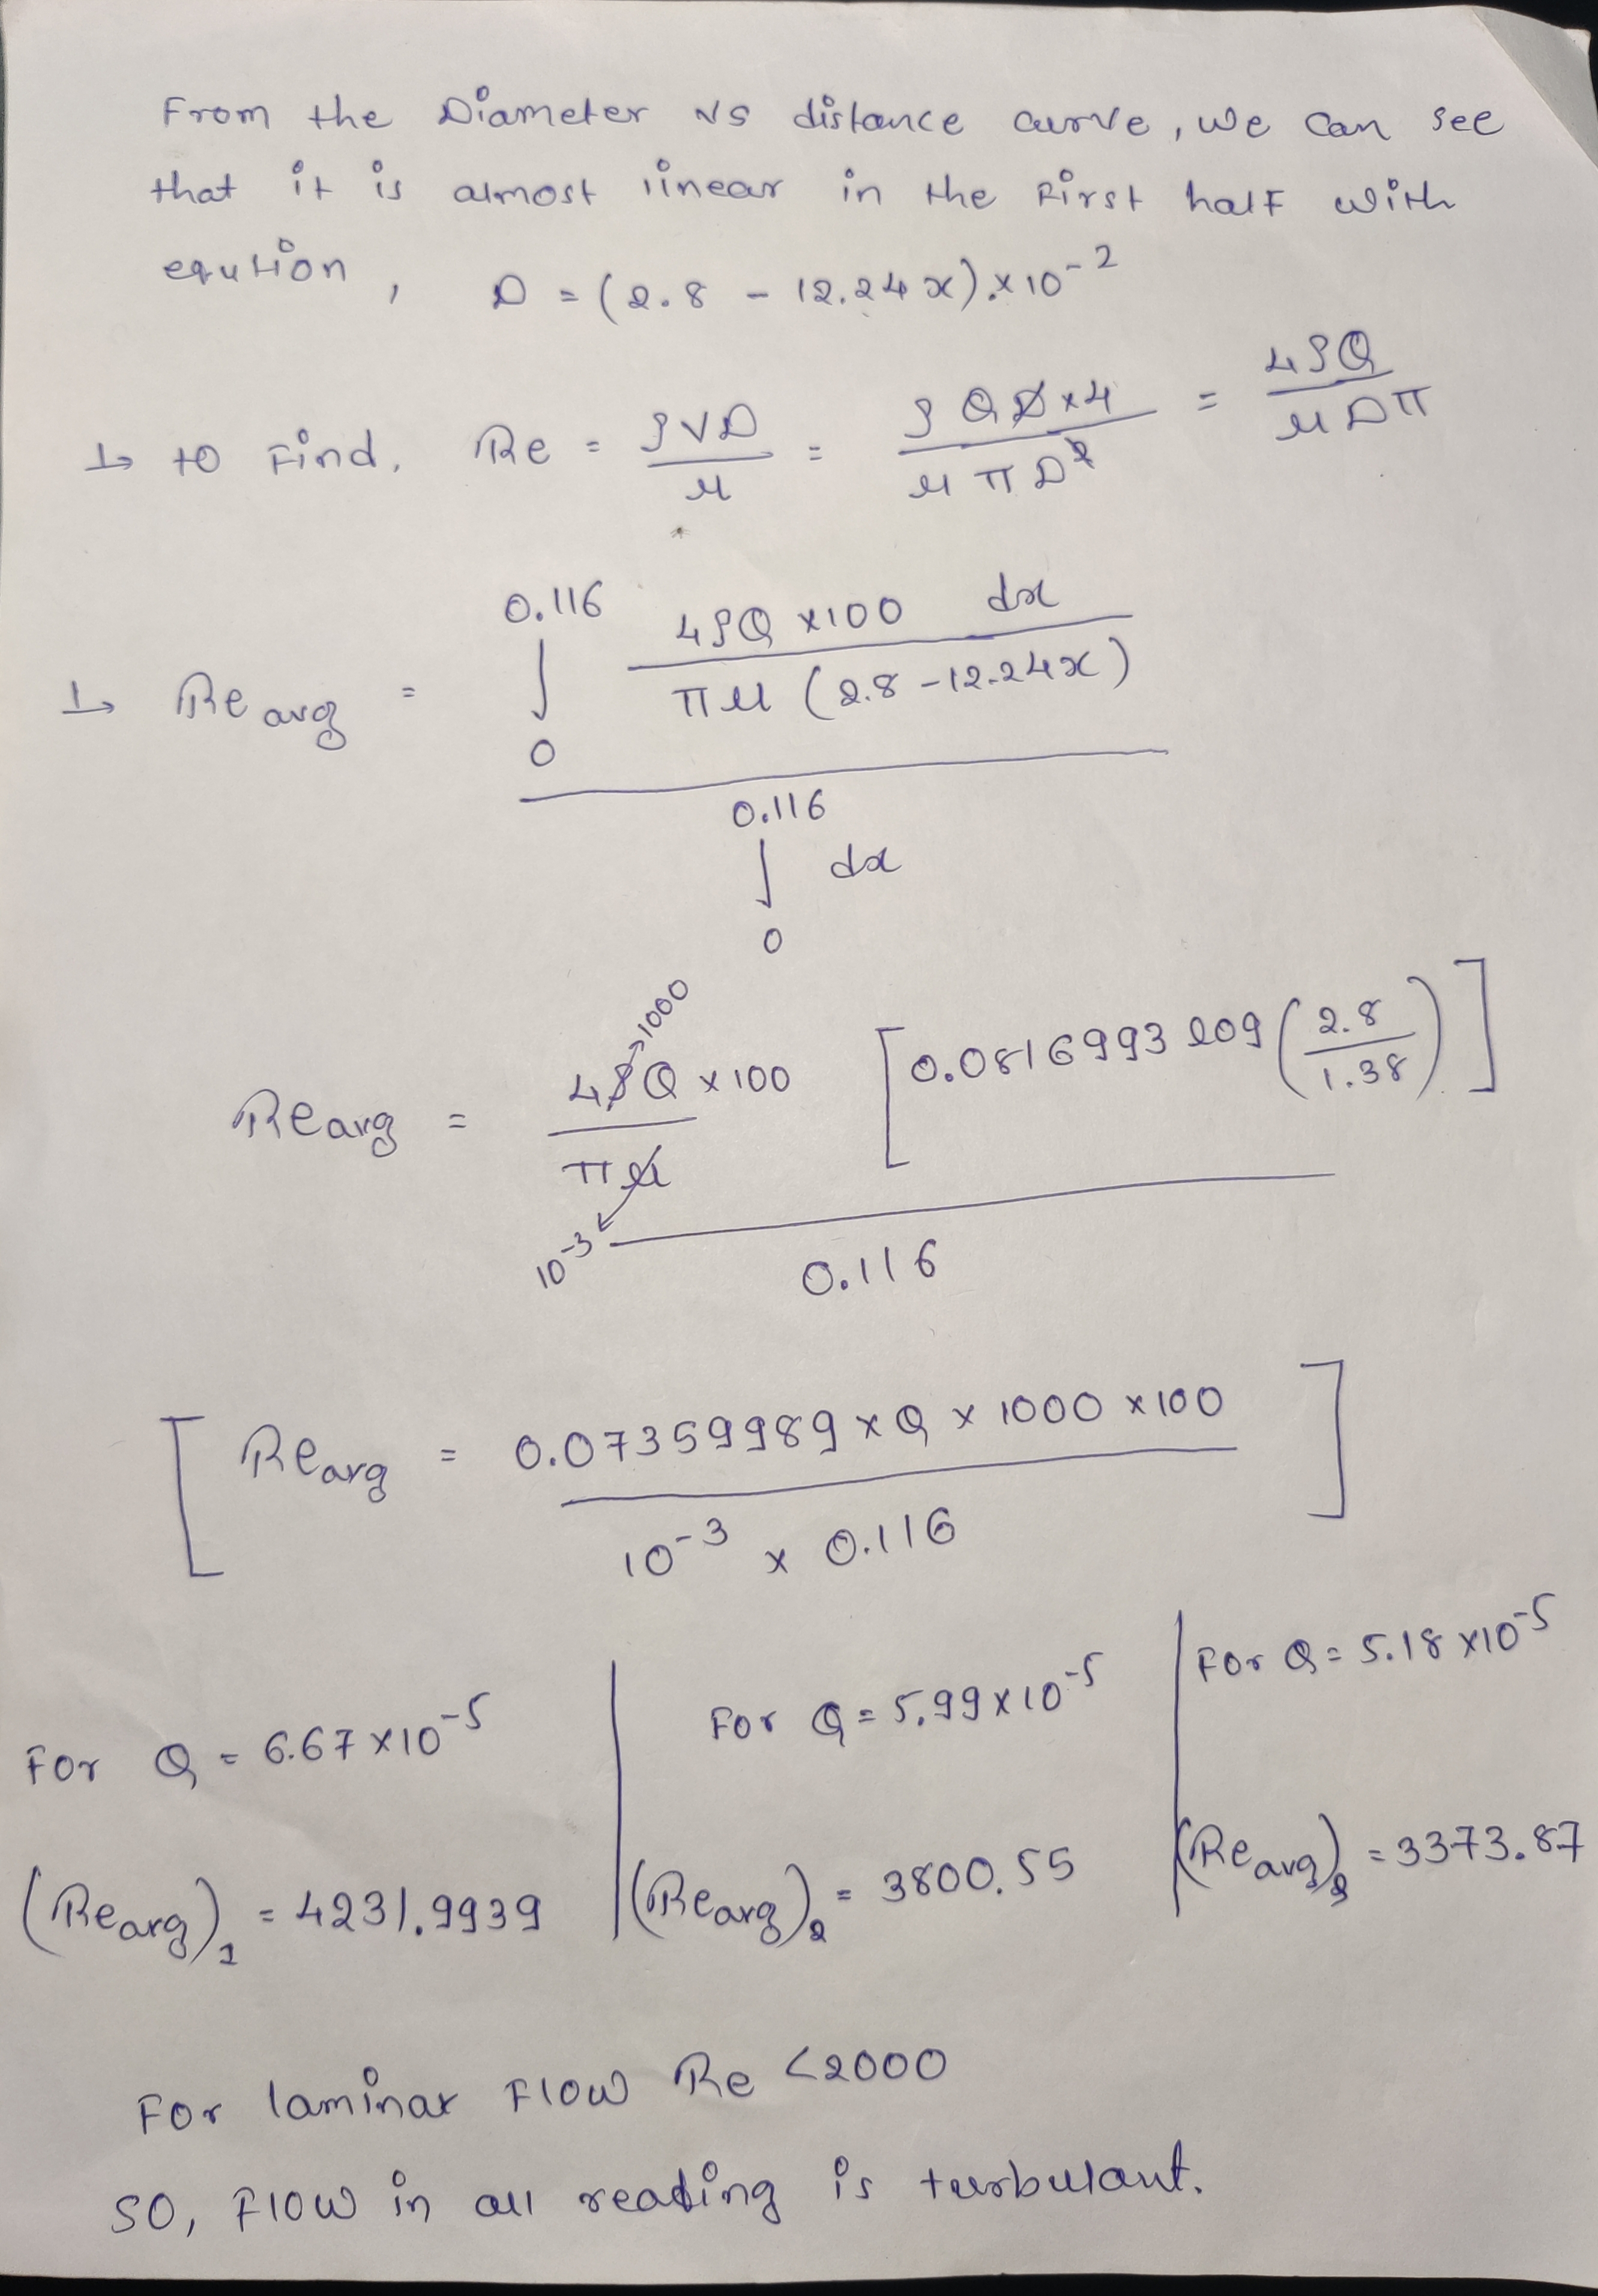 From the Diameter vs distance curve, we can see
that it is almost linear in the first half with
eqution, D = (2.8 - 12.24x).×10⁻²
↳ to find, Re = ρVD/μ = ρQD×4/μπD² = 4ρQ/μDπ
↳ Re avg = ∫₀^0.116 4ρQ×100 dx / πμ(2.8-12.24x) / ∫₀^0.116 dx
Re avg = 4ρQ×100/πμ [0.0816993 log(2.8/1.38)] / 0.116
→1000
10⁻³
[Re avg = 0.07359989×Q×1000×100 / 10⁻³ × 0.116]
For Q = 6.67×10⁻⁵ | For Q = 5.99×10⁻⁵ | For Q = 5.18×10⁻⁵
(Re avg)₁ = 4231.9939 | (Re avg)₂ = 3800.55 | (Re avg)₃ = 3373.87
For laminar flow Re <2000
so, flow in all reading is turbulant.